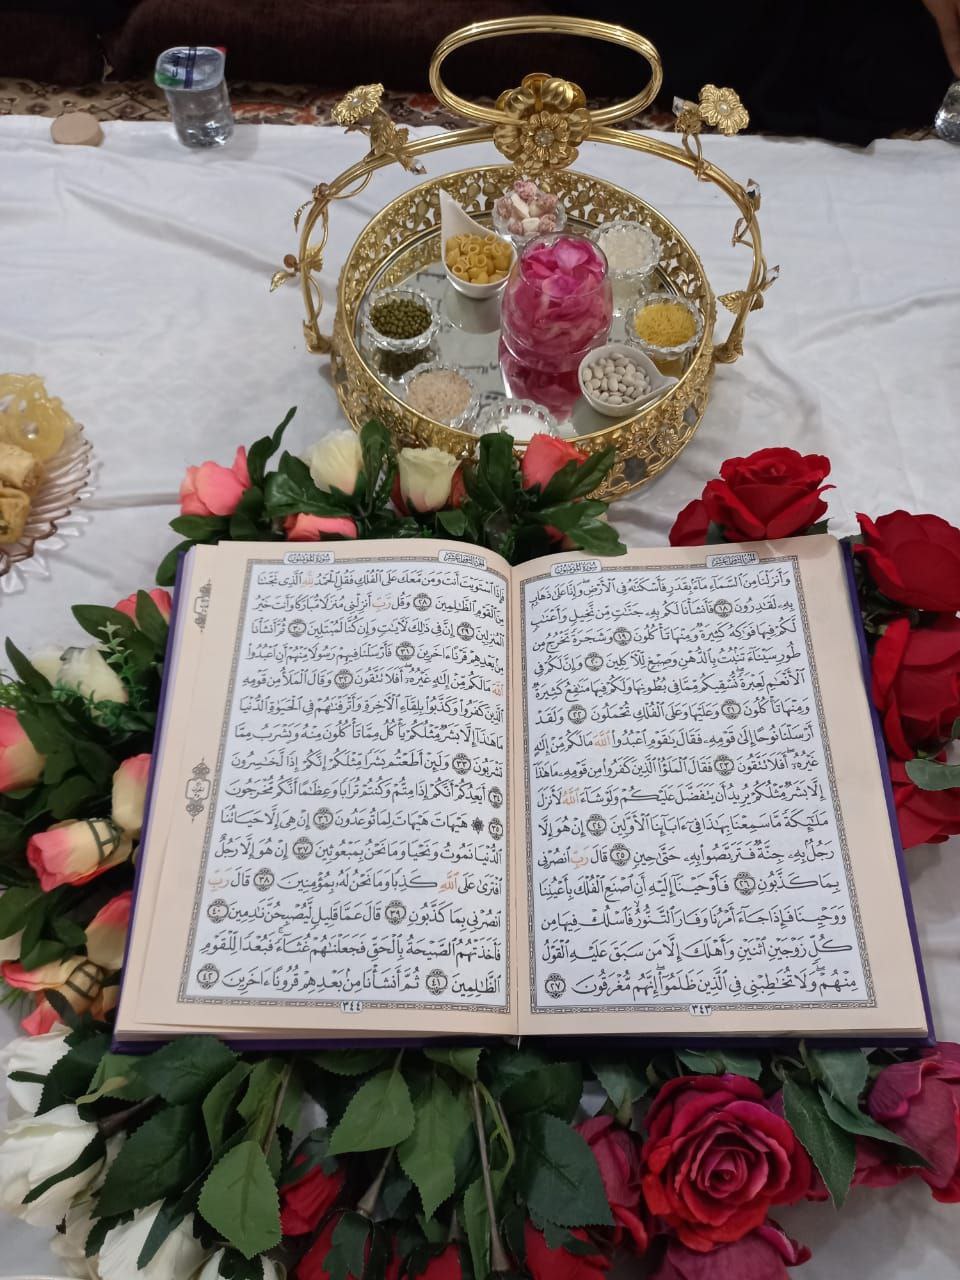 الجزء الثامن عشر سورة المؤمنون
وَأَنزَلْنَا مِنَ السَّمَاءِ مَاءً بِقَدَرٍ فَأَسْكَنَّاهُ فِي الْأَرْضِ ۖ وَإِنَّا عَلَىٰ ذَهَابٍ
بِهِۦ لَقَٰدِرُونَ ١٨ فَأَنشَأْنَا لَكُم بِهِۦ جَنَّٰتٍ مِّن نَّخِيلٍ وَأَعْنَٰبٍ
لَّكُمْ فِيهَا فَوَٰكِهُ كَثِيرَةٌ وَمِنْهَا تَأْكُلُونَ ١٩ وَشَجَرَةً تَخْرُجُ مِن
طُورِ سَيْنَآءَ تَنۢبُتُ بِٱلدُّهْنِ وَصِبْغٍ لِّلْءَاكِلِينَ ٢٠ وَإِنَّ لَكُمْ فِي
ٱلْأَنْعَٰمِ لَعِبْرَةً ۖ نُّسْقِيكُم مِّمَّا فِي بُطُونِهَا وَلَكُمْ فِيهَا مَنَٰفِعُ كَثِيرَةٌ
وَمِنْهَا تَأْكُلُونَ ٢١ وَعَلَيْهَا وَعَلَى ٱلْفُلْكِ تُحْمَلُونَ ٢٢ وَلَقَدْ
أَرْسَلْنَا نُوحًا إِلَىٰ قَوْمِهِۦ فَقَالَ يَٰقَوْمِ ٱعْبُدُوا۟ ٱللَّهَ مَا لَكُم مِّنْ إِلَٰهٍ
غَيْرُهُۥٓ ۖ أَفَلَا تَتَّقُونَ ٢٣ فَقَالَ ٱلْمَلَؤُا۟ ٱلَّذِينَ كَفَرُوا۟ مِن قَوْمِهِۦ مَا هَٰذَآ
إِلَّا بَشَرٌ مِّثْلُكُمْ يُرِيدُ أَن يَتَفَضَّلَ عَلَيْكُمْ وَلَوْ شَآءَ ٱللَّهُ لَأَنزَلَ
مَلَٰٓئِكَةً مَّا سَمِعْنَا بِهَٰذَا فِيٓ ءَابَآئِنَا ٱلْأَوَّلِينَ ٢٤ إِنْ هُوَ إِلَّا
رَجُلٌۢ بِهِۦ جِنَّةٌ فَتَرَبَّصُوا۟ بِهِۦ حَتَّىٰ حِينٍ ٢٥ قَالَ رَبِّ ٱنصُرْنِي
بِمَا كَذَّبُونِ ٢٦ فَأَوْحَيْنَآ إِلَيْهِ أَنِ ٱصْنَعِ ٱلْفُلْكَ بِأَعْيُنِنَا
وَوَحْيِنَا فَإِذَا جَآءَ أَمْرُنَا وَفَارَ ٱلتَّنُّورُ ۙ فَٱسْلُكْ فِيهَا مِن
كُلٍّ زَوْجَيْنِ ٱثْنَيْنِ وَأَهْلَكَ إِلَّا مَن سَبَقَ عَلَيْهِ ٱلْقَوْلُ
مِنْهُمْ ۖ وَلَا تُخَٰطِبْنِي فِي ٱلَّذِينَ ظَلَمُوٓا۟ ۖ إِنَّهُم مُّغْرَقُونَ ٢٧
٣٤٣
الجزء الثامن عشر سورة المؤمنون
فَإِذَا ٱسْتَوَيْتَ أَنتَ وَمَن مَّعَكَ عَلَى ٱلْفُلْكِ فَقُلِ ٱلْحَمْدُ لِلَّهِ ٱلَّذِي نَجَّىٰنَا
مِنَ ٱلْقَوْمِ ٱلظَّٰلِمِينَ ٢٨ وَقُل رَّبِّ أَنزِلْنِي مُنزَلًا مُّبَارَكًا وَأَنتَ خَيْرُ
ٱلْمُنزِلِينَ ٢٩ إِنَّ فِي ذَٰلِكَ لَءَايَٰتٍ وَإِن كُنَّا لَمُبْتَلِينَ ٣٠ ثُمَّ أَنشَأْنَا
مِنۢ بَعْدِهِمْ قَرْنًا ءَاخَرِينَ ٣١ فَأَرْسَلْنَا فِيهِمْ رَسُولًا مِّنْهُمْ أَنِ ٱعْبُدُوا۟
ٱللَّهَ مَا لَكُم مِّنْ إِلَٰهٍ غَيْرُهُۥٓ ۖ أَفَلَا تَتَّقُونَ ٣٢ وَقَالَ ٱلْمَلَأُ مِن قَوْمِهِ
ٱلَّذِينَ كَفَرُوا۟ وَكَذَّبُوا۟ بِلِقَآءِ ٱلْءَاخِرَةِ وَأَتْرَفْنَٰهُمْ فِي ٱلْحَيَوٰةِ ٱلدُّنْيَا
مَا هَٰذَآ إِلَّا بَشَرٌ مِّثْلُكُمْ يَأْكُلُ مِمَّا تَأْكُلُونَ مِنْهُ وَيَشْرَبُ مِمَّا
تَشْرَبُونَ ٣٣ وَلَئِنْ أَطَعْتُم بَشَرًا مِّثْلَكُمْ إِنَّكُمْ إِذًا لَّخَٰسِرُونَ
٣٤ أَيَعِدُكُمْ أَنَّكُمْ إِذَا مِتُّمْ وَكُنتُمْ تُرَابًا وَعِظَٰمًا أَنَّكُم مُّخْرَجُونَ
٣٥ ۞ هَيْهَاتَ هَيْهَاتَ لِمَا تُوعَدُونَ ٣٦ إِنْ هِيَ إِلَّا حَيَاتُنَا
ٱلدُّنْيَا نَمُوتُ وَنَحْيَا وَمَا نَحْنُ بِمَبْعُوثِينَ ٣٧ إِنْ هُوَ إِلَّا رَجُلٌ
ٱفْتَرَىٰ عَلَى ٱللَّهِ كَذِبًا وَمَا نَحْنُ لَهُۥ بِمُؤْمِنِينَ ٣٨ قَالَ رَبِّ
ٱنصُرْنِي بِمَا كَذَّبُونِ ٣٩ قَالَ عَمَّا قَلِيلٍ لَّيُصْبِحُنَّ نَٰدِمِينَ ٤٠
فَأَخَذَتْهُمُ ٱلصَّيْحَةُ بِٱلْحَقِّ فَجَعَلْنَٰهُمْ غُثَآءً ۚ فَبُعْدًا لِّلْقَوْمِ
ٱلظَّٰلِمِينَ ٤١ ثُمَّ أَنشَأْنَا مِنۢ بَعْدِهِمْ قُرُونًا ءَاخَرِينَ ٤٢
٣٤٤